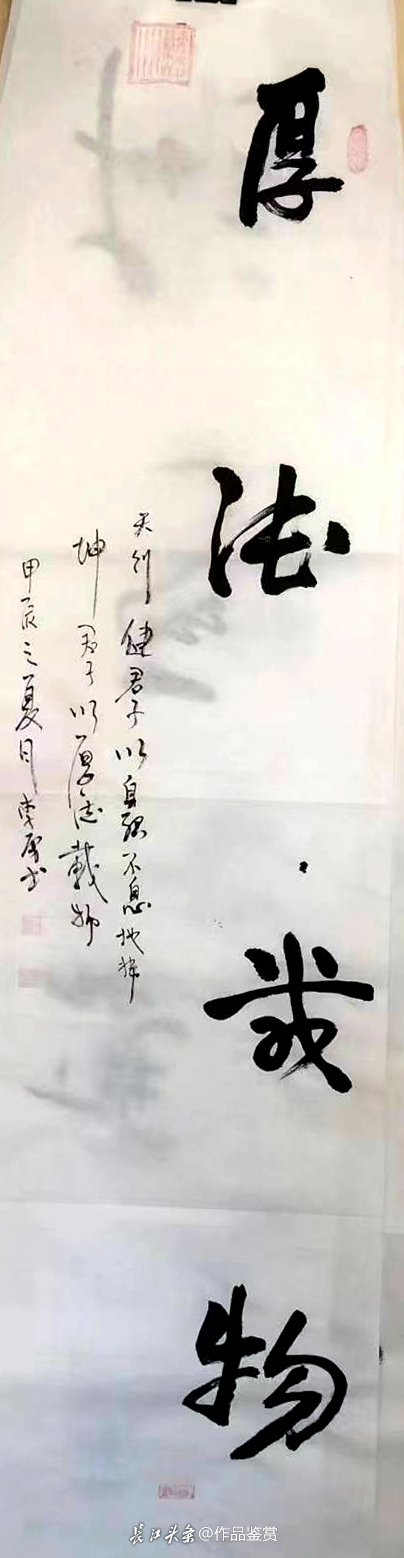 厚德载物
天行健君子以自强不息地势
坤君子以厚德载物
甲辰之夏月
长江头条@作品鉴赏